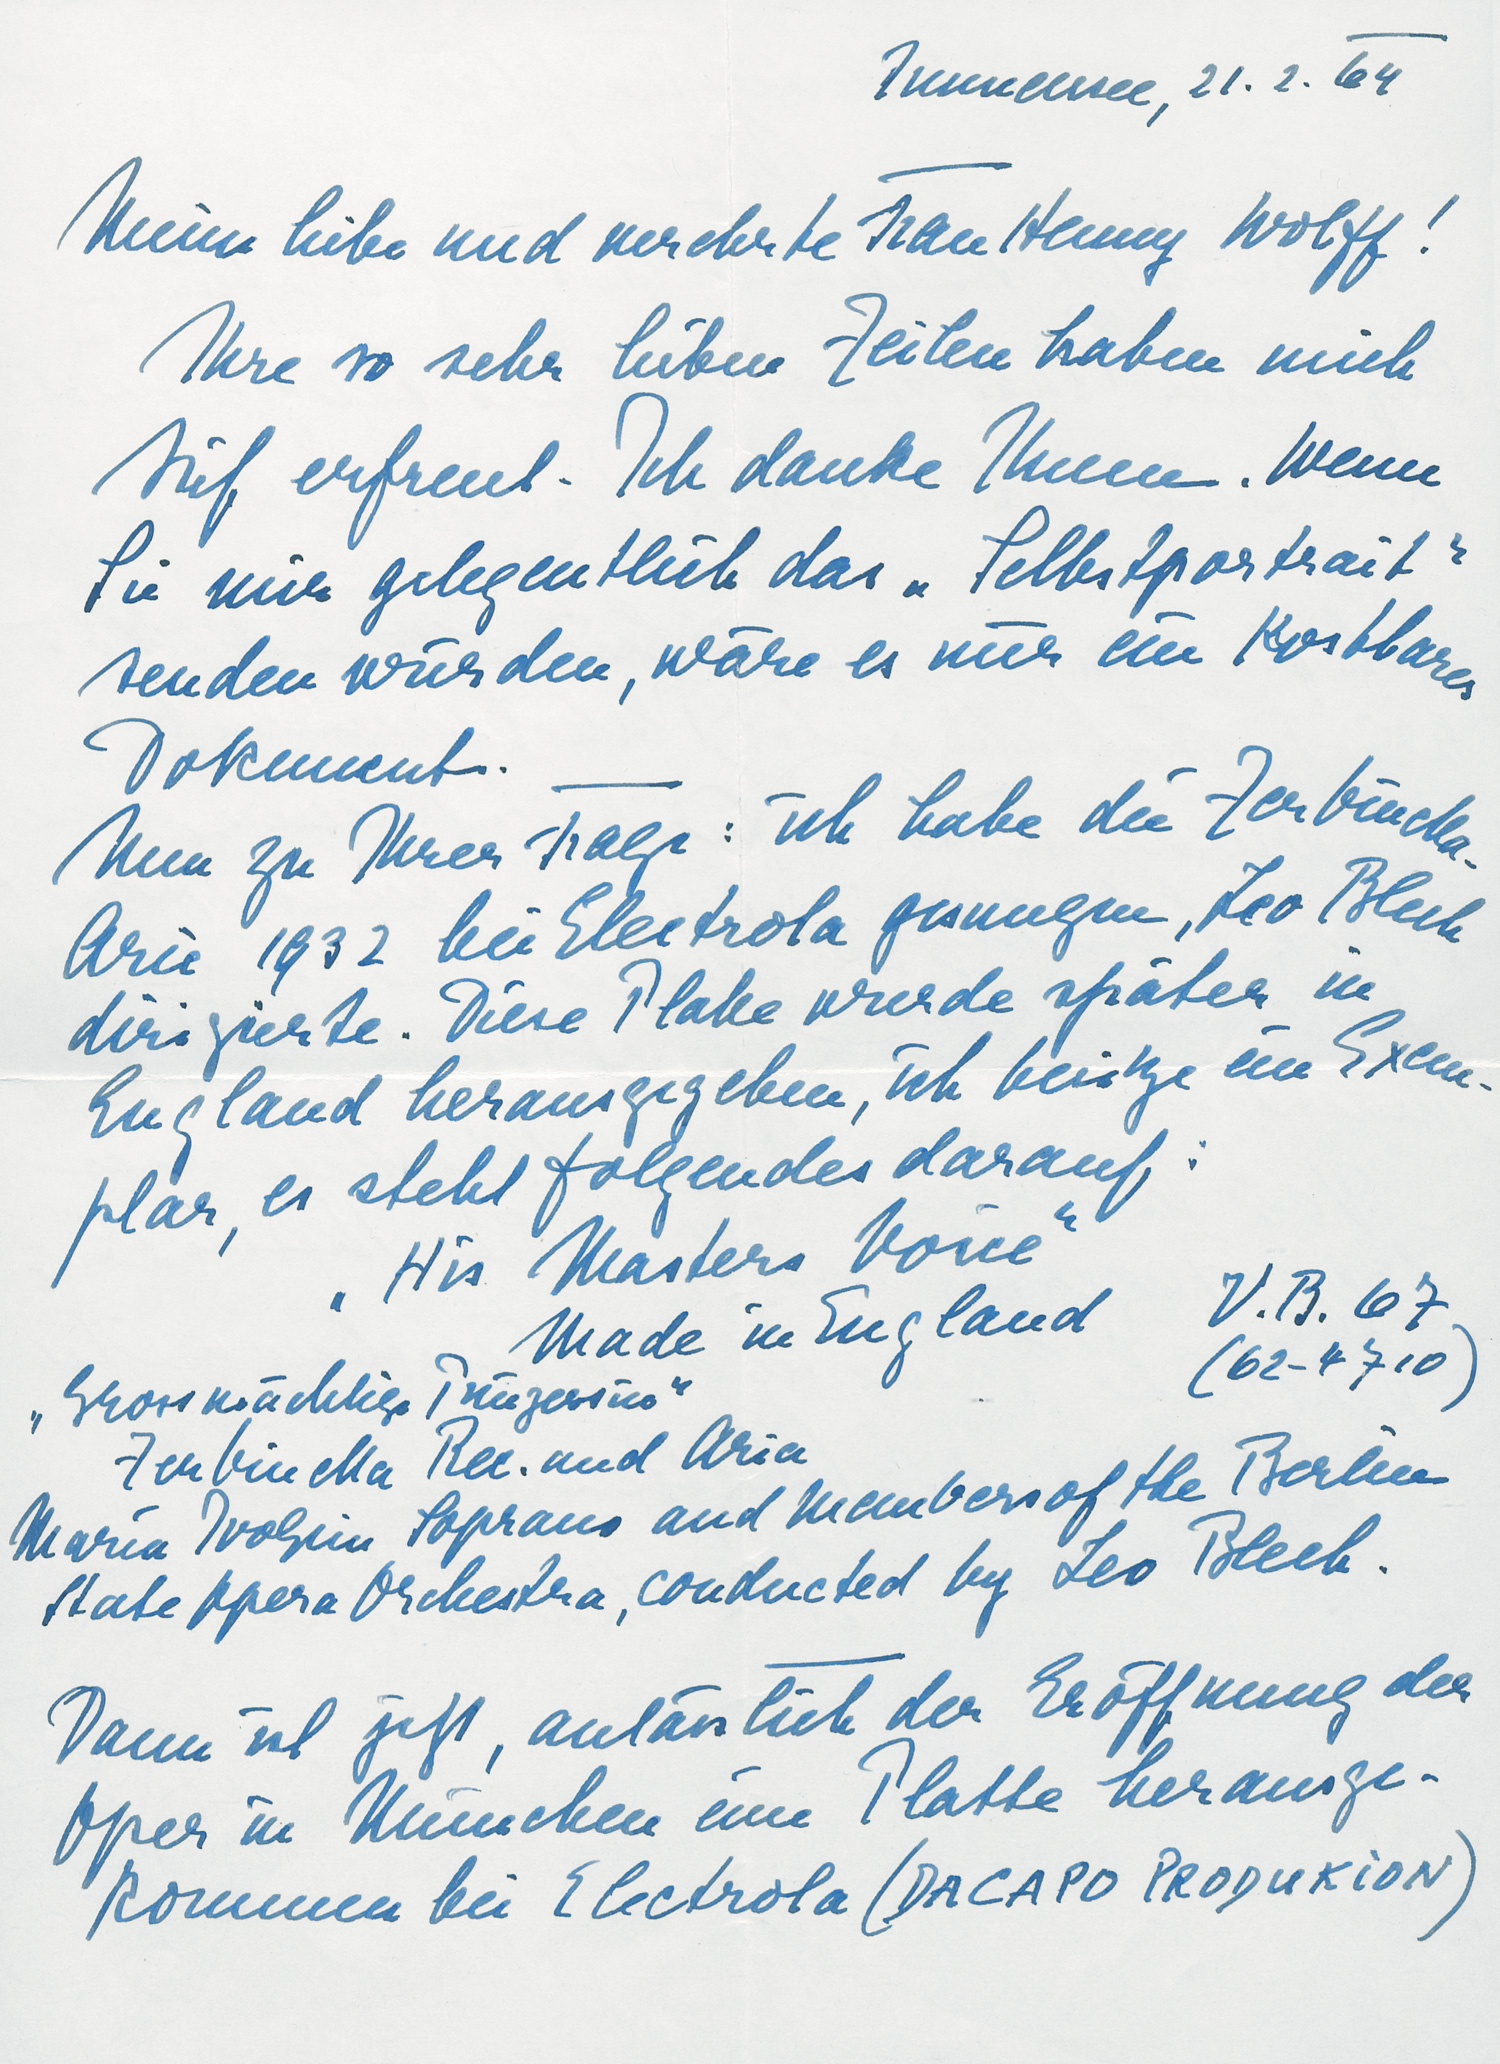 Immensee, 21. 2. 64
Meine liebe und verehrte Frau Henny Wolff!
Ihre so sehr lieben Zeilen haben mich
tief erfreut. Ich danke Ihnen. Wenn
Sie mir gelegentlich das „Selbstportrait"
senden würden, wäre es mir ein kostbares
Dokument.
Nun zu Ihrer Frage: ich habe die Zerbinetta-
Arie 1932 bei Electrola gesungen, Leo Blech
dirigierte. Diese Platte wurde später in
England herausgegeben, ich besitze ein Exem-
plar, es steht folgendes darauf:
„His Masters Voice"
Made in England V.B. 67
(62-4710)
„Grossmächtige Prinzessin"
Zerbinetta Rec. and Aria
Maria Ivogün Soprano and Members of the Berlin
State Opera Orchestra, conducted by Leo Blech.
Dann ist jetzt, anlässlich der Eröffnung der
Oper in München eine Platte herausge-
kommen bei Electrola (DACAPO PRODUKION)